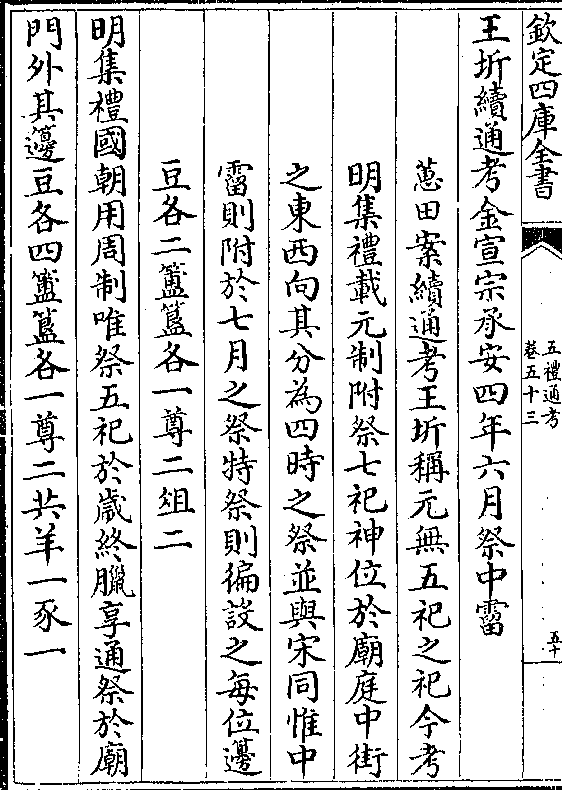 欽定四庫全書
五禮通考
卷五十三
五十
王圻續通考金宣宗承安四年六月祭中霤
蕙田案續通考王圻稱元無五祀之祀今考
明集禮載元制附祭七祀神位於廟庭中街
之東西向其分為四時之祭並與宋同惟中
霤則附於七月之祭特祭則徧設之每位籩
豆各二簠簋各一尊二俎二
明集禮國朝用周制唯祭五祀於歲終臘享通祭於廟
門外其籩豆各四簠簋各一尊二共羊一豕一